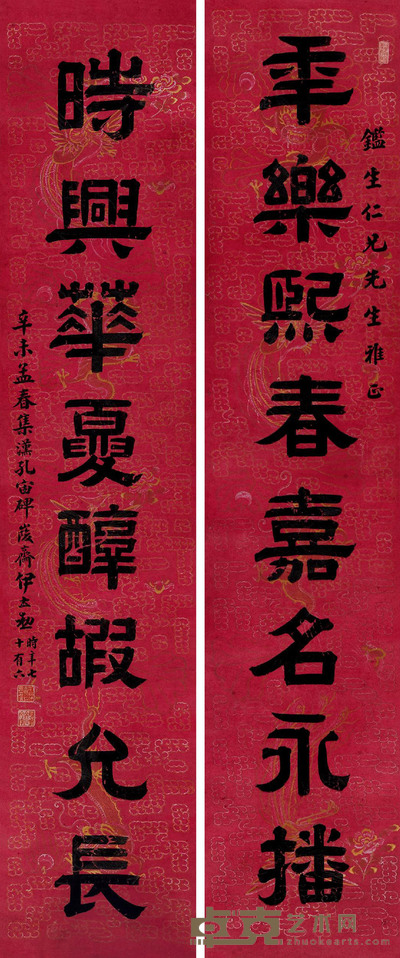 年樂熙春嘉名永播
鑑生仁兄先生雅正
時興華夏醇嘏允長
辛未孟春集漢孔宙碑峻齋伊立勳時年七
十有六
卓克艺术网